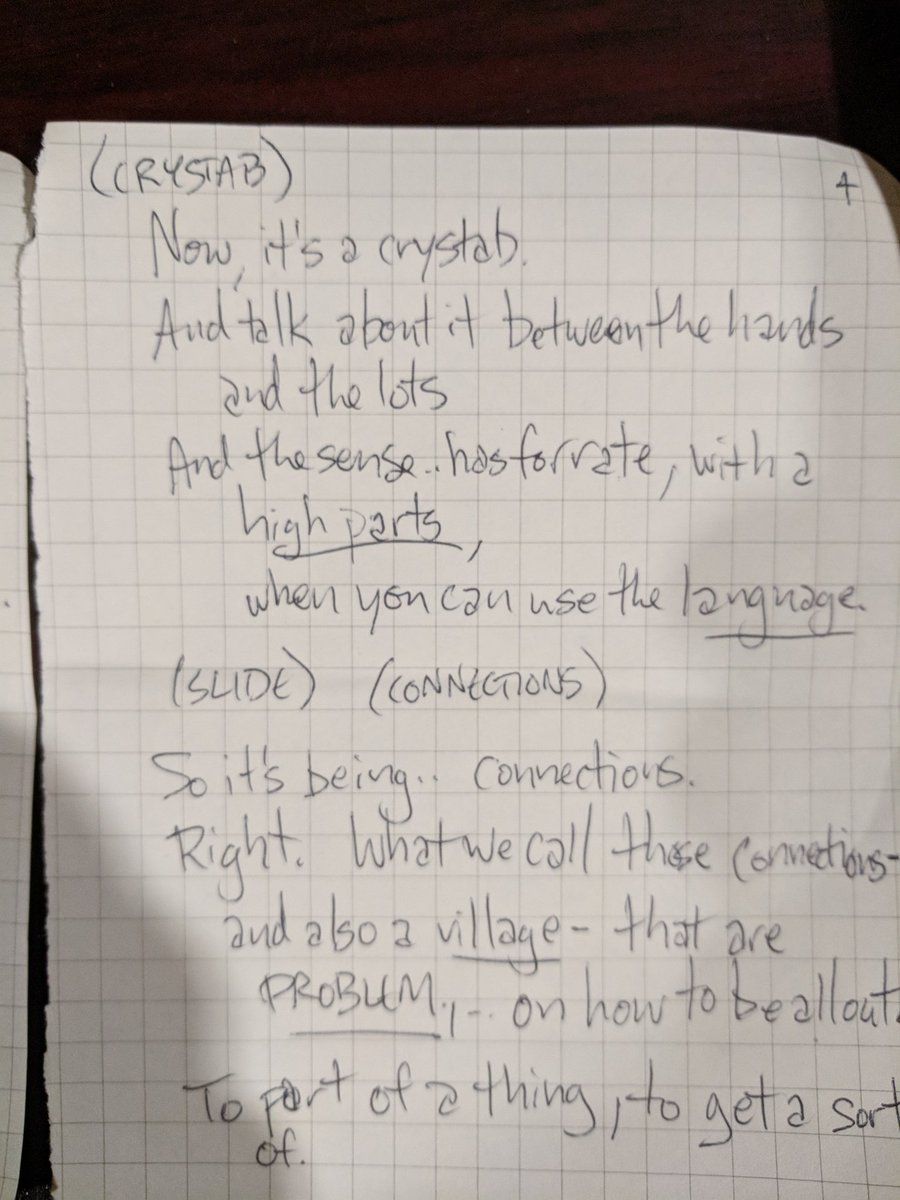 (CRYSTAB)
4
Now, it's a crystab.
And talk about it between the hands
and the lots
And the sense.. has for rate, with a
high parts,
when you can use the language.
(SLIDE) (CONNECTIONS)
So it's being.. connections.
Right. What we call those connections-
and also a village - that are
PROBLEM.,-.. on how to be all out.
To part of a thing, to get a sort
of.